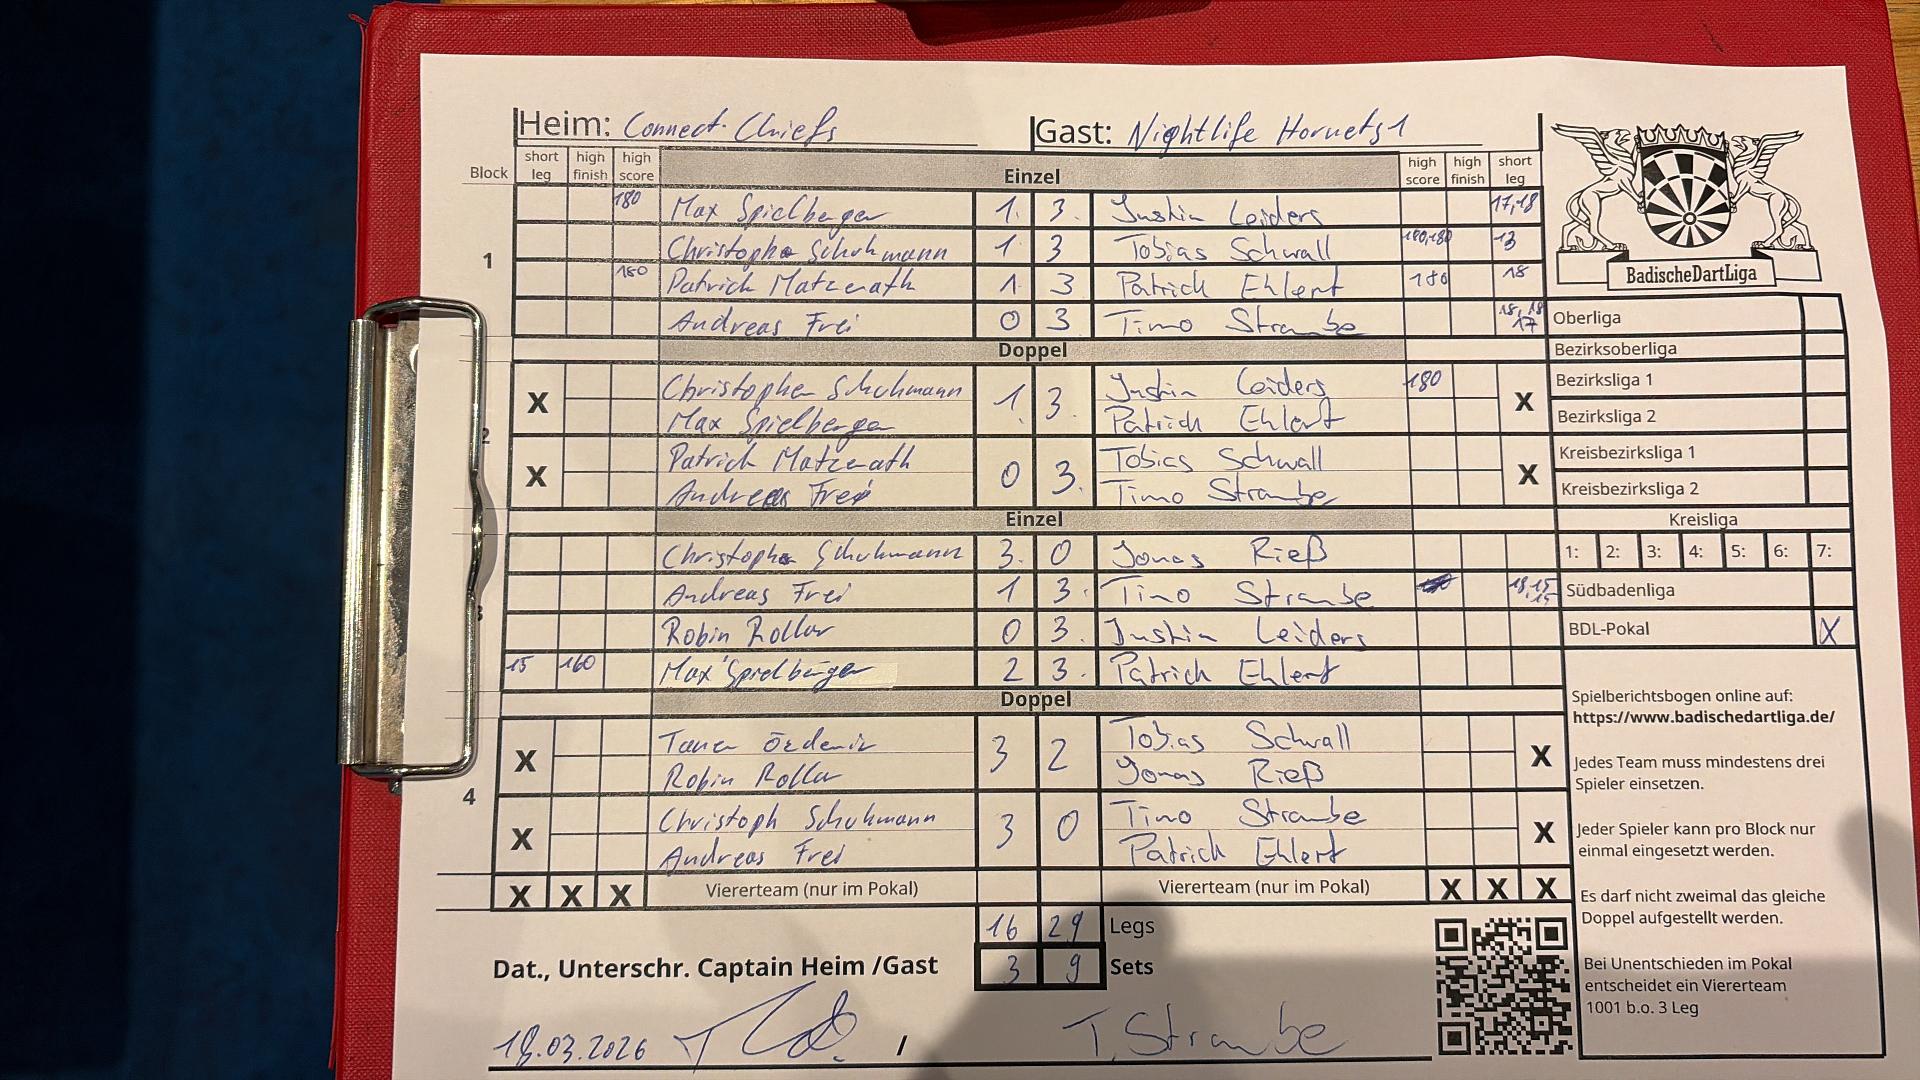 Heim: Connect Chiefs Gast: Nightlife Hornets 1
Block short leg high finish high score Einzel high score high finish short leg
180 Max Spielberger 1 3 Justin Leiders 17,18
1 Christoph Schuhmann 1 3 Tobias Schwall 180,180 13
180 Patrick Matzerath 1 3 Patrick Ehlert 180 18
Andreas Frei 0 3 Timo Straube 18, 18 17
Doppel
2 X Christoph Schuhmann 1 3 Justin Leiders 180 X
Max Spielberger Patrick Ehlert
X Patrick Matzerath 0 3 Tobias Schwall X
Andreas Frei Timo Straube
Einzel
Christoph Schuhmann 3 0 Jonas Rieß
3 Andreas Frei 1 3 Timo Straube 18,15
Robin Rollar 0 3 Justin Leiders
15 160 Max Spielberger 2 3 Patrick Ehlert
Doppel
4 X Taner Özdemir 3 2 Tobias Schwall X
Robin Rollar Jonas Rieß
X Christoph Schuhmann 3 0 Timo Straube X
Andreas Frei Patrick Ehlert
X X X Viererteam (nur im Pokal) Viererteam (nur im Pokal) X X X
16 29 Legs
Dat., Unterschr. Captain Heim /Gast 3 9 Sets
18.03.2026 / T. Straube
BadischeDartLiga
Oberliga
Bezirksoberliga
Bezirksliga 1
Bezirksliga 2
Kreisbezirksliga 1
Kreisbezirksliga 2
Kreisliga
1: 2: 3: 4: 5: 6: 7:
Südbadenliga
BDL-Pokal X
Spielberichtsbogen online auf:
https://www.badischedartliga.de/
Jedes Team muss mindestens drei
Spieler einsetzen.
Jeder Spieler kann pro Block nur
einmal eingesetzt werden.
Es darf nicht zweimal das gleiche
Doppel aufgestellt werden.
Bei Unentschieden im Pokal
entscheidet ein Viererteam
1001 b.o. 3 Leg